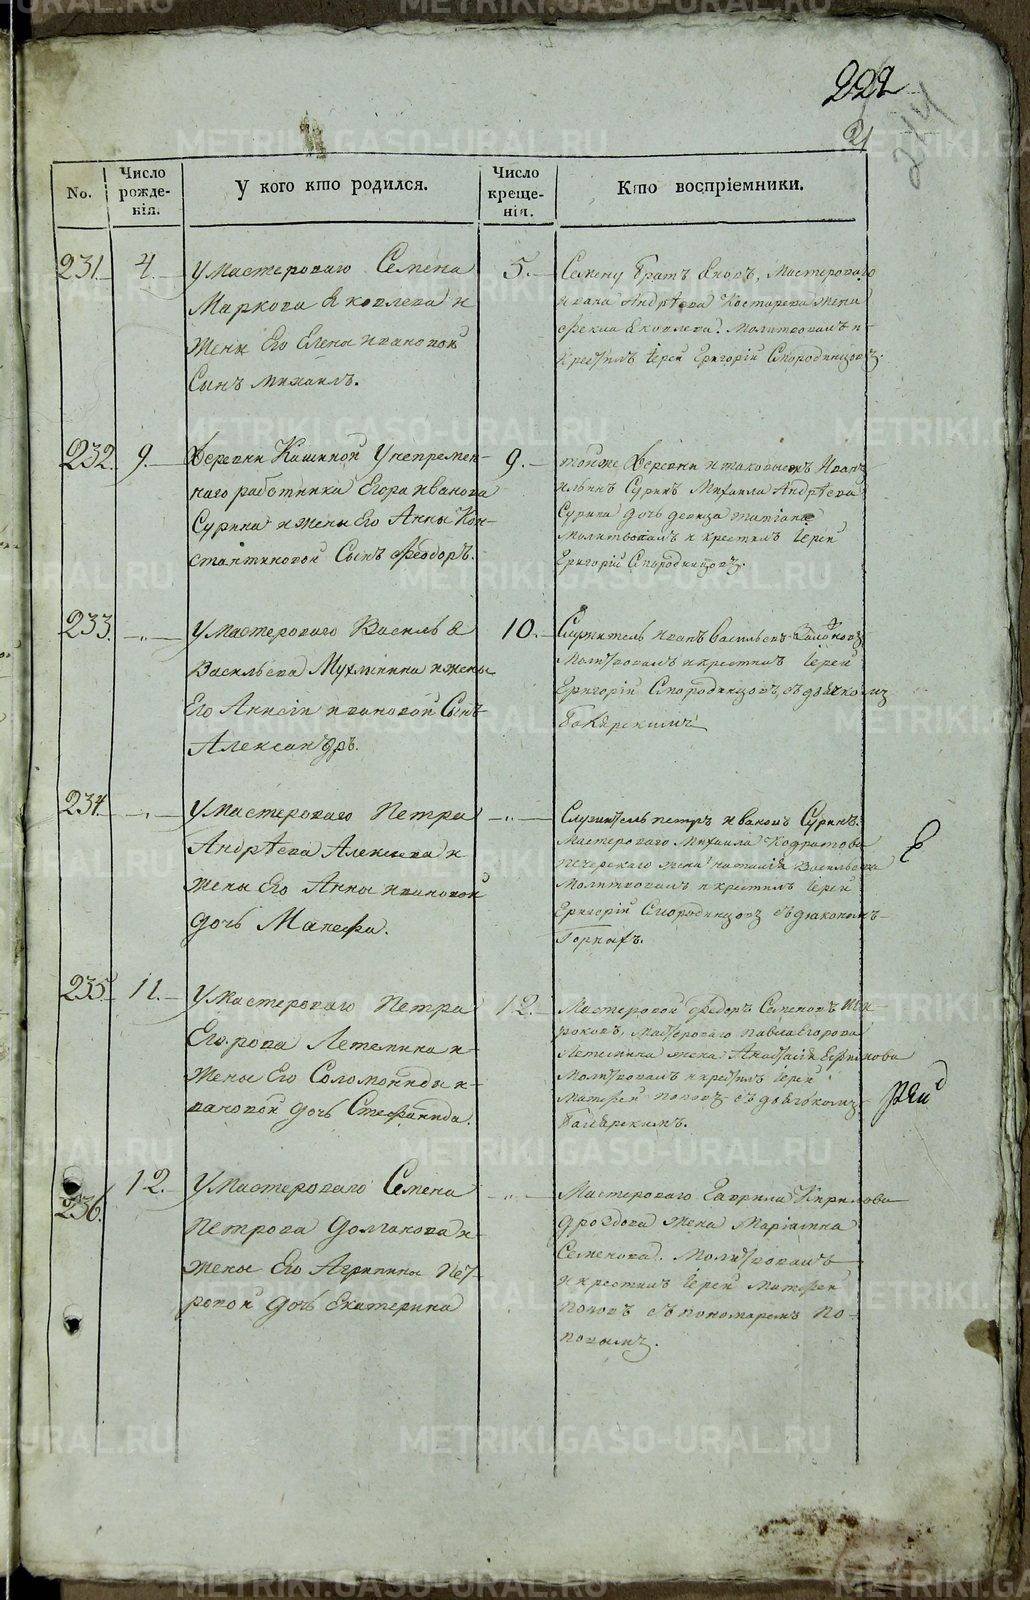 222
214
21
No.
Число рожденія.
У кого кто родился.
Число крещенія.
Кто воспріемники.
231.
4.
У Мастероваго Семена
Маркова Яковлева и
жены Его Елены Ивановой
Сынъ Михаилъ.
5.
Семену братъ Яковъ, Мастероваго
Ивана Андрѣева Костарева жена
Фекла Яковлева. Молитвовалъ и
крестилъ Іерей Григорій Смородинцовъ.
232.
9.
Деревни Кашиной У непремен-
наго работника Егора Иванова
Сурина и жены Его Анны Кон-
стантиновой Сынъ Феодоръ.
9.
тойже Деревни Иванъ
Ильинъ Суринъ Михаила Андрѣева
Сурина дочь девица
Молитвовалъ и крестилъ Іерей
Григорій Смородинцовъ.
233.
У Мастероваго Василья
Васильева Мухлынина и жены
Его Анисіи Ивановой Сынъ
Александръ.
10.
Служитель Иванъ Васильевъ
Молитвовалъ и крестилъ Іерей
Григорій Смородинцовъ, съ дьячкомъ
234.
У Мастероваго Петра
Андрѣева Алексеева и
жены Его Анны Ивановой
дочь Манефа.
Служитель петръ Ивановъ Суринъ.
Мастероваго Михаила Кодратова
Печерскаго жена наталія Васильева
Молитвовалъ и крестилъ Іерей
Григорій Смородинцовъ съ діакономъ
235.
11.
У Мастероваго Петра
Егорова Летемина и
жены Его Соломониды И-
вановой дочь Стефанида.
12.
Мастеровой Федоръ Семеновъ Ши-
роковъ, Мастероваго павла Егорова
Летемина жена Анастасія Ефимова
Молитвовалъ и крестилъ Іерей
Матфей поповъ съ дьячкомъ
236.
12.
У Мастероваго Семена
Петрова Долганова и
жены Его Агрипины Пет-
ровой дочь Екатерина
Мастероваго Гаврила Кирилова
Дроздова жена Маріанна
Семенова. Молитвовалъ
и крестилъ Іерей Матфей
Поповъ съ пономаремъ По-
повымъ.
METRIKI.GASO-URAL.RU